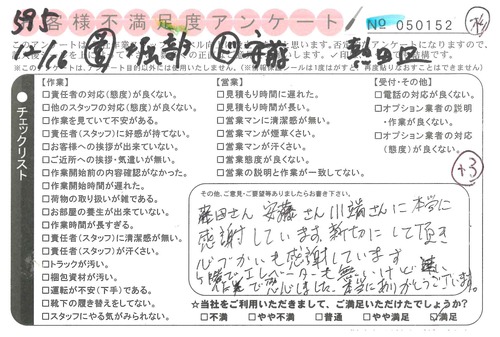 595
お客様不満足度アンケート
No 050152
【作業】
□責任者の対応(態度)が良くない。
□他のスタッフの対応(態度)が良くない。
□作業を見ていて不安がある。
□責任者(スタッフ)に好感が持てない。
□お客様への挨拶が出来ていない。
□ご近所への挨拶・気遣いが無い。
□作業開始前の内容確認がなかった。
□作業開始時間が遅れた。
□荷物の取り扱いが雑である。
□お部屋の養生が出来ていない。
□作業時間が長すぎる。
□責任者(スタッフ)に清潔感が無い。
□責任者(スタッフ)が汗くさい。
□トラックが汚い。
□梱包資材が汚い。
□運転が不安(下手)である。
□靴下の履き替えをしてない。
□スタッフにやる気がみられない。
【営業】
□見積もり時間に遅れた。
□見積もり時間が長い。
□営業マンに清潔感が無い。
□営業マンが煙草くさい。
□営業マンが汗くさい。
□営業態度が良くない。
□営業の説明と作業が一致してない。
【受付・その他】
□電話の対応が良くない。
□オプション業者の説明
・作業が良くない。
□オプション業者の対応
(態度)が良くない。
チェックリスト
+3
その他、ご意見・ご要望等ありましたらお書き下さい。
藤田さん 安藤さん 川端さんに本当に
感謝しています。親切にして頂き
心づかいも感謝しています
☆当社をご利用いただきまして、ご満足いただけたでしょうか?
□不満 □やや不満 □普通 □やや満足 ☑満足